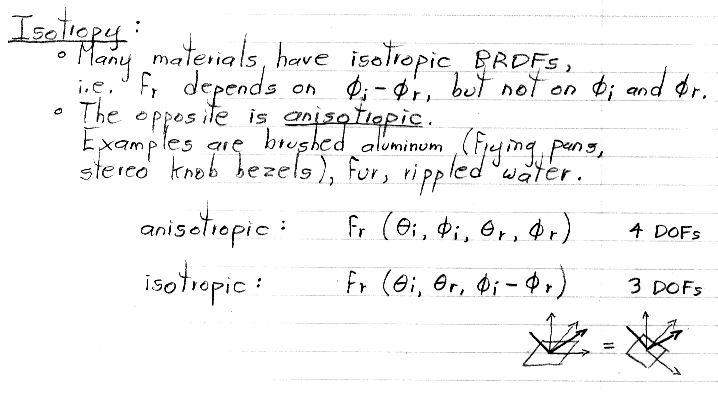 Isotropy:
◦ Many materials have isotropic BRDFs,
i.e. fr depends on ϕi-ϕr, but not on ϕi and ϕr.
◦ The opposite is anisotropic.
Examples are brushed aluminum (frying pans,
stereo knob bezels), fur, rippled water.
anisotropic: fr (θi, ϕi, θr, ϕr) 4 DOFs
isotropic: fr (θi, θr, ϕi-ϕr) 3 DOFs
=